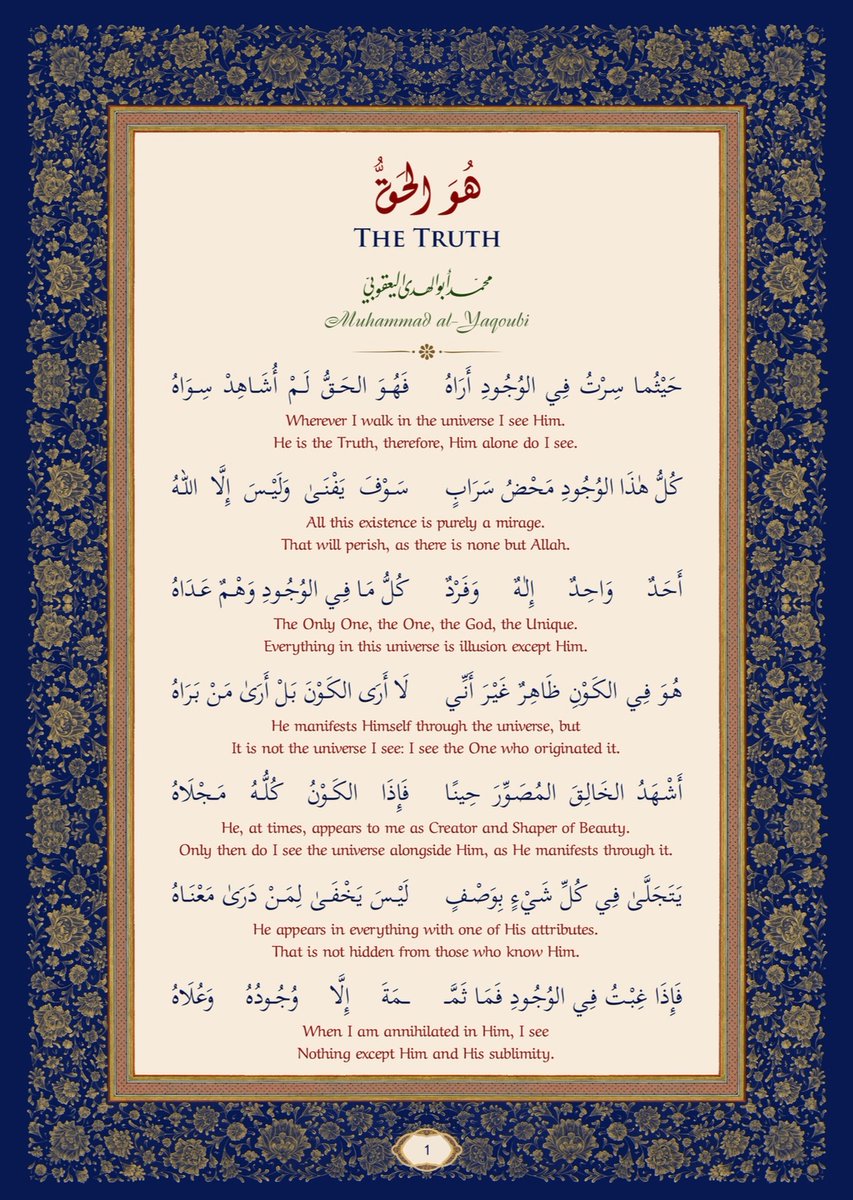 هُوَ الحَقُّ
THE TRUTH
محمد أبو الهدى اليعقوبي
Muhammad al-Yaqoubi
حَيْثُما سِرْتُ فِي الوُجُودِ أَرَاهُ فَهُوَ الحَقُّ لَمْ أُشَاهِدْ سِوَاهُ
Wherever I walk in the universe I see Him.
He is the Truth, therefore, Him alone do I see.
كُلُّ هٰذَا الوُجُودِ مَحْضُ سَرَابٍ سَوْفَ يَفْنَىٰ وَلَيْسَ إِلَّا اللهُ
All this existence is purely a mirage.
That will perish, as there is none but Allah.
أَحَدٌ وَاحِدٌ إِلٰهٌ وَفَرْدٌ كُلُّ مَا فِي الوُجُودِ وَهْمٌ عَدَاهُ
The Only One, the One, the God, the Unique.
Everything in this universe is illusion except Him.
هُوَ فِي الكَوْنِ ظَاهِرٌ غَيْرَ أَنِّي لَا أَرَى الكَوْنَ بَلْ أَرَىٰ مَنْ بَرَاهُ
He manifests Himself through the universe, but
It is not the universe I see: I see the One who originated it.
أَشْهَدُ الخَالِقَ المُصَوِّرَ حِينًا فَإِذَا الكَوْنُ كُلُّهُ مَجْلَاهُ
He, at times, appears to me as Creator and Shaper of Beauty.
Only then do I see the universe alongside Him, as He manifests through it.
يَتَجَلَّىٰ فِي كُلِّ شَيْءٍ بِوَصْفٍ لَيْسَ يَخْفَىٰ لِمَنْ دَرَىٰ مَعْنَاهُ
He appears in everything with one of His attributes.
That is not hidden from those who know Him.
فَإِذَا غِبْتُ فِي الوُجُودِ فَمَا ثَمَّـ ـمَةَ إِلَّا وُجُودُهُ وَعُلَاهُ
When I am annihilated in Him, I see
Nothing except Him and His sublimity.
1